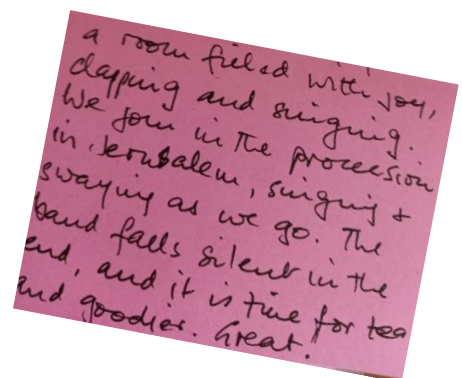 a room filled with joy,
clapping and singing.
We join in the procession
in Jerusalem, singing +
swaying as we go. The
band falls silent in the
end, and it is time for tea
and goodies. Great!